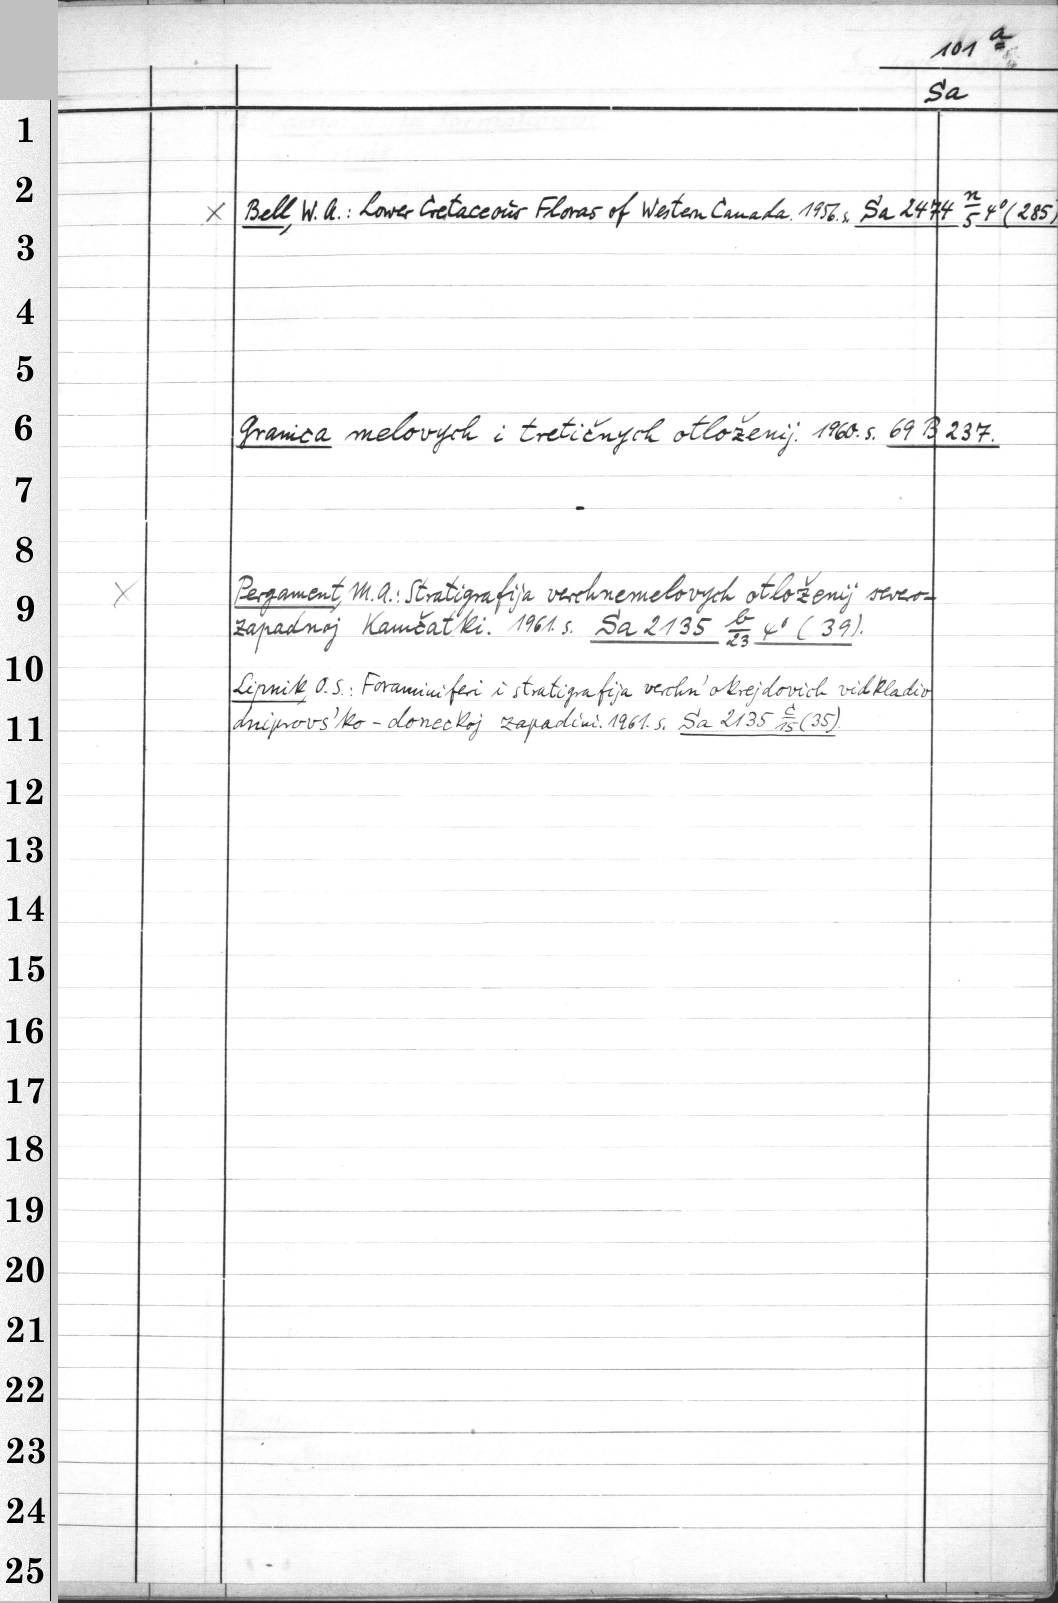 101 a
Sa
1
2
× Bell, W. A.: Lower Cretaceous Floras of Western Canada. 1956. s. Sa 2474 n/5 4° (285)
3
4
5
6
Granica melovych i tretičnych otloženij. 1960. s. 69 B 237.
7
8
× Pergament, M. A.: Stratigrafija verchnemelovych otloženij severo-
9
zapadnoj Kamčatki. 1961. s. Sa 2135 b/23 4° (39).
10
Lipnik, O. S.: Foraminiferi i stratigrafija verchn'okrejdovich vidkladiv
11
dniprovs'ko-doneckoj zapadini. 1961. s. Sa 2135 c/15 (35)
12
13
14
15
16
17
18
19
20
21
22
23
24
25